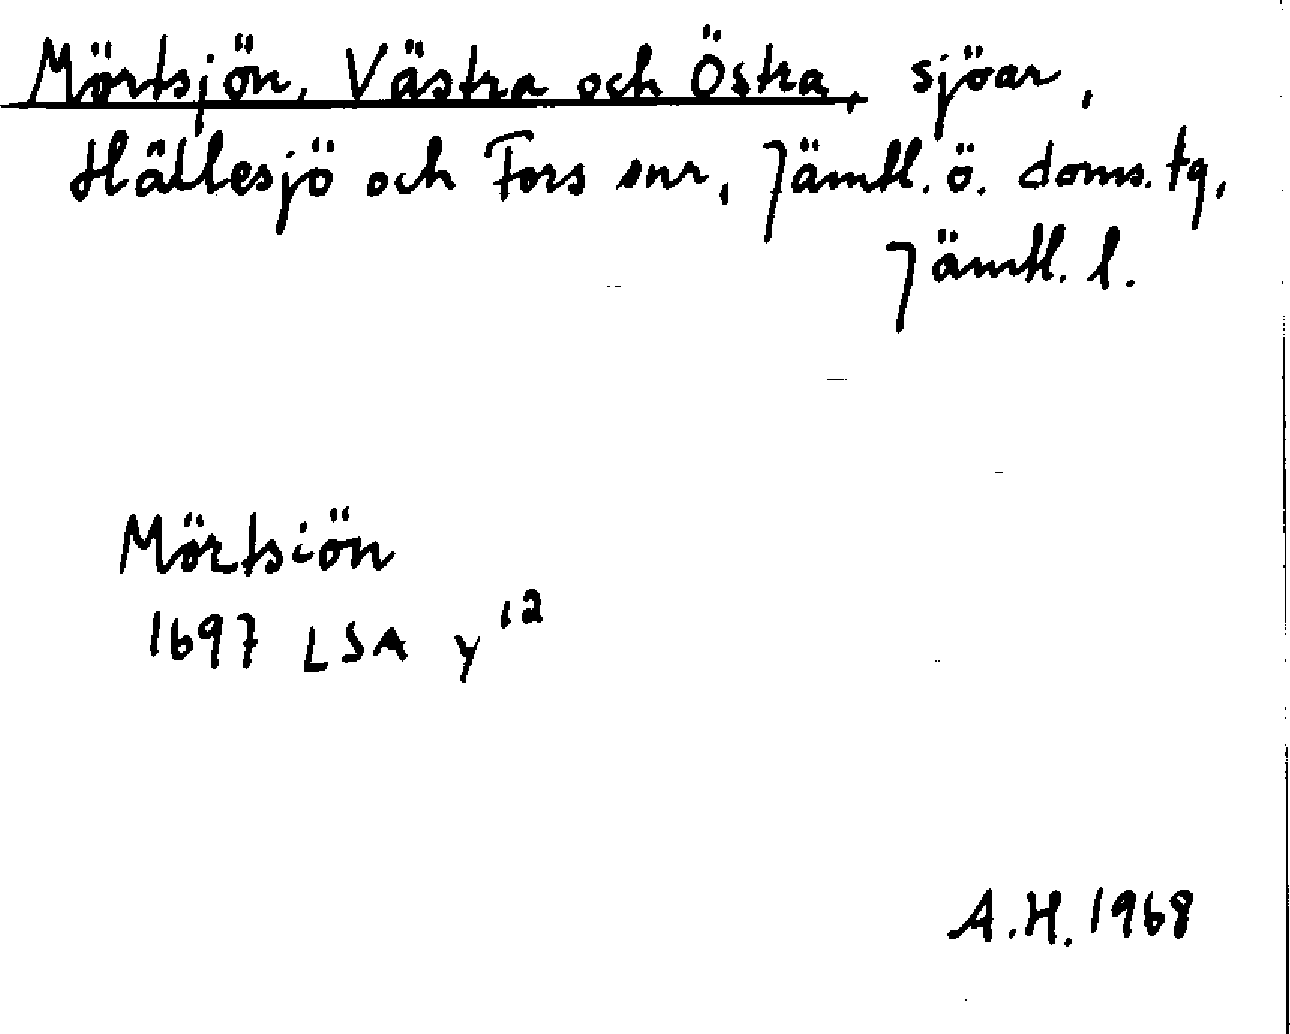 Mörtsjön, Västra och Östra, sjöar,
Hällesjö och Fors snr, Jämtl. ö. doms. tg,
Jämtl. l.
Mörtsiön
1697 LSA y¹²
A.H. 1968